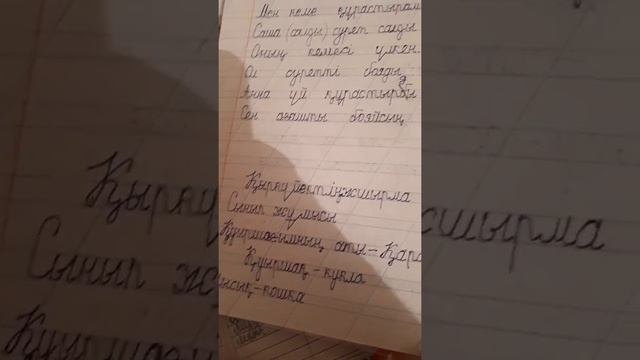 Мен кеме құрастырам
Саша (салды) сурет салды
Оның кемесі үлкен.
Ол суретті бояды
Анна үй құрастырды
Сен ағашты бояйсың
Қыркүйектің жиырма
Сынып жұмысы
Қуыршағымның аты - Қара
Қуыршақ - кукла
мысық - кошка